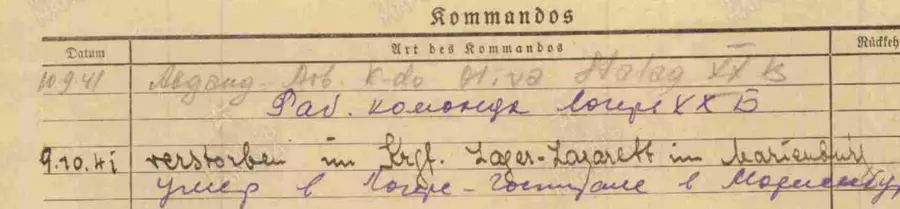 Kommandos
Datum Art des Kommandos Rückkeh
10.9.41 Abgang Arb. K-do Oliva Stalag XX B
Раб. команда лагерь XX Б
9.10.41 verstorben im Krgf. Lager-Lazarett im Marienburg
умер в лагере-госпитале в Мариенбур